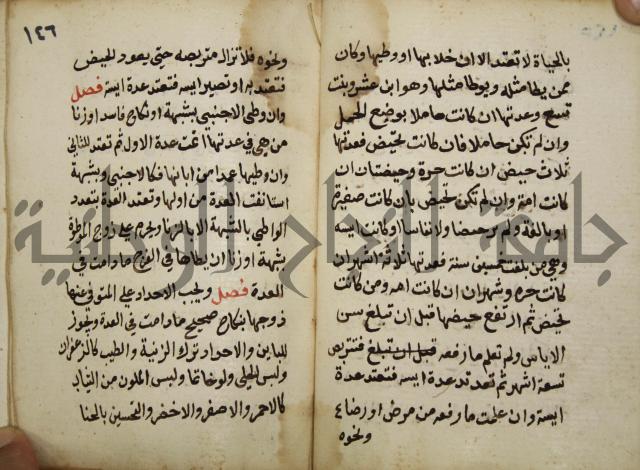 بالحياة لا تعتد الا ان خلا بها او وطيها وكان
ممن يطا مثله ويوطا مثلها وهو ابن عشر وبنت
تسع وعدتها ان كانت حاملا بوضع الحمل
وان لم تكن حاملا فان كانت تحيض فعدتها
ثلاث حيض ان كانت حرة وحيضتان ان
كانت امة وان لم تكن تحيض بان كانت صغيرة
او بالغة ولم ترحيضا ولا نفاسا او كانت ايسه
وهي من بلغت خمسين سنة فعدتها ثلاثة اشهر ان
كانت حره وشهران ان كانت امه ومن كانت
تحيض ثم ارتفع حيضها قبل ان تبلغ سن
الاياس ولم تعلم ما رفعه قبل ان تبلغ فتتربص
تسعة اشهر ثم تعتد عدة ايسه فتعتد عدة
ايسة وان علمت ما رفعه من مرض او رضاع
ونحوه
١٤٦
ونحوه فلا تزال متربصه حتى يعود الحيض
فتعتد به او تصير ايسه فتعتد عدة ايسة فصل
وان وطي الاجنبي بشبهة او نكاح فاسد او زنا
من هي في عدتها اتمت عدة الاول ثم تعتد للثاني
وان وطيها عمدا من ابانها فكالاجنبي وبشبهة
استانفت العدة من اولها وتتعدد العدة بتعدد
الواطي بالشبهة الا بالزنا ويحرم على زوج الموطوة
بشبهة او زنا ان يطاها في الفرج ما دامت في
العدة فصل ويجب الاحداد على المتوفى عنها
زوجها بنكاح صحيح ما دامت في العدة ويجوز
للباين والاحداد ترك الزينة والطيب كالزعفران
ولبس الحلي ولو خاتما ولبس الملون من الثياب
كالاحمر والاصفر والاخضر والتحسين بالحنا
جامعة النجاح الوطنية